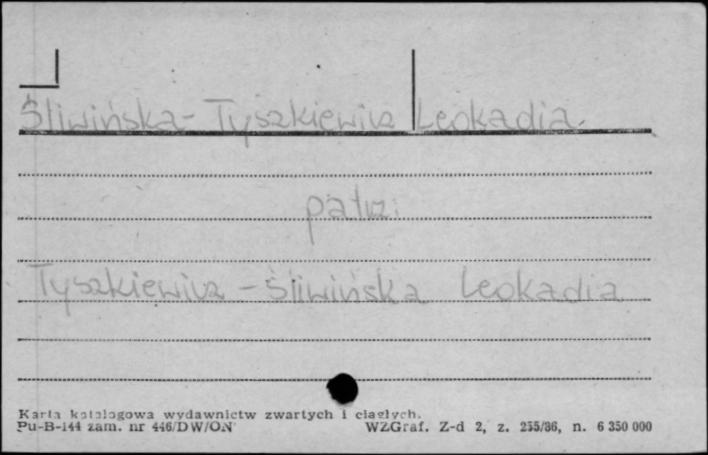 Śliwińska-Tyszkiewicz Leokadia.
patrz:
Tyszkiewicz-Śliwińska Leokadia
Karta katalogowa wydawnictw zwartych i ciągłych.
Pu-B-144 zam. nr 446/DW/ON WZGraf. Z-d 2, z. 255/86, n. 6 350 000